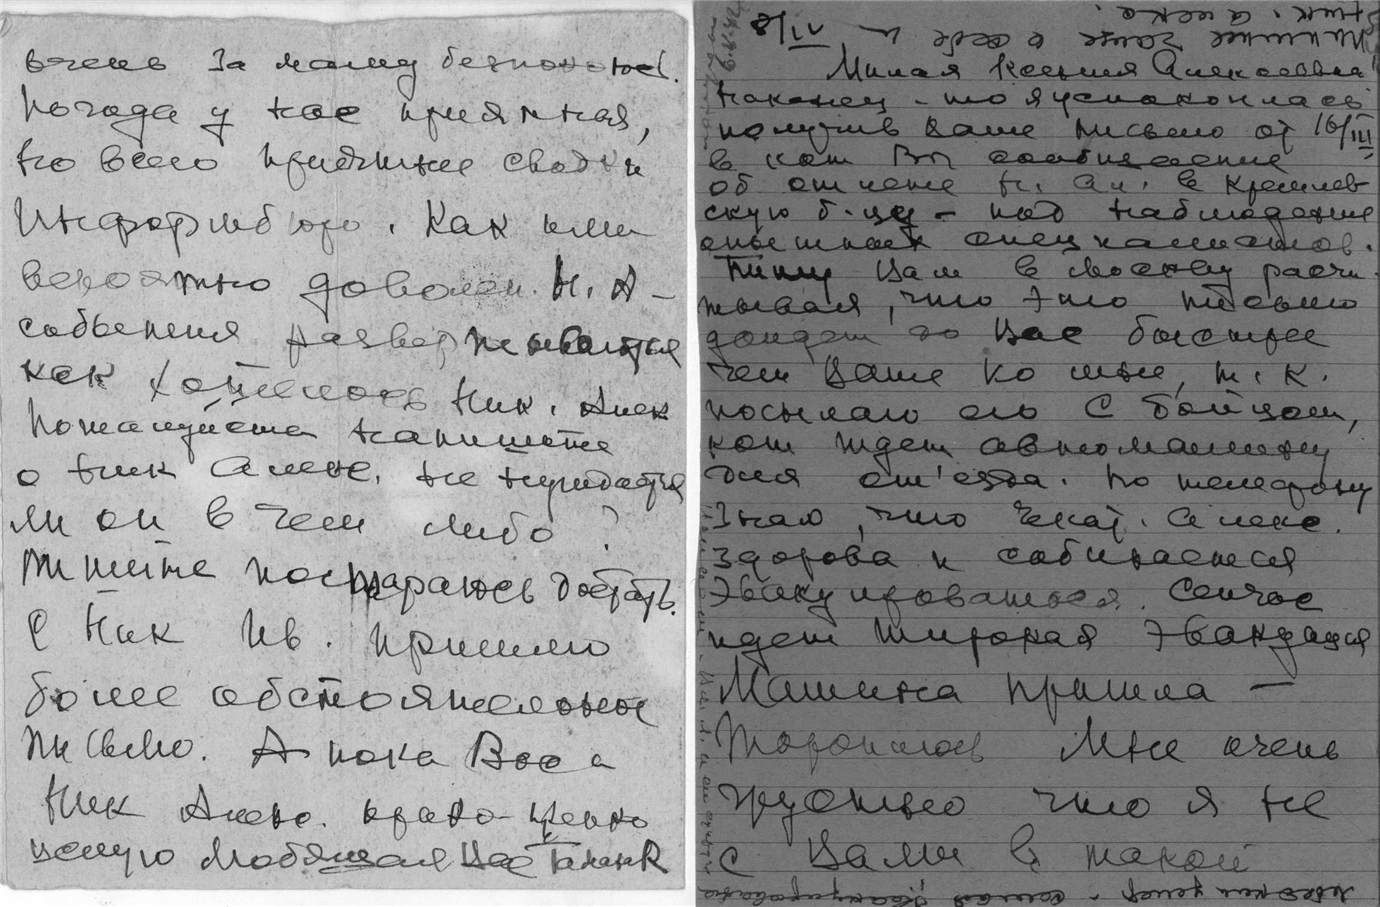 очень за маму беспокоюсь.
Погода у нас приятная,
но всего приятнее сводки
Информбюро. Как или
вероятно доволен Н. А –
события развертываются
как хотелось Ник. Алек
Пожалуйста напишите
о Ник Алекс. не нуждается
ли он в чем либо?
Пишите постараюсь достать.
С Ник Ив. пришлю
более обстоятельное
письмо. А пока Вас и
Ник Алекс. крепко-крепко
целую Любящая Вас
пишите чаще о себе и
Ник. Алекс.
Милая Ксения Алексеевна
наконец-то я успокоилась
получив Ваше письмо от 16/III
в кот Вы сообщаете
об Н. Ал. в Кремлев
скую б-цу – под наблюдение
опытных специалистов.
Пишу Вам в Москву расчи
тывая, что это письмо
дойдет до Вас быстрее
чем Ваше ко мне, т. к.
посылаю его с бойцом,
кот ждет автомашину
для от'езда. По телефону
знаю, что Алекс.
здорова и собирается
эвакуироваться. Сейчас
идет широкая эвакуация
Машина пришла –
Тороплюсь Мне очень
грустно что я не
с Вами в такой